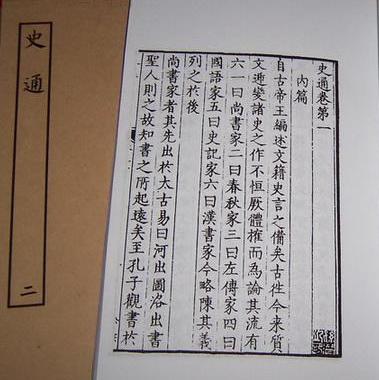 史通卷第一
內篇
自古帝王編述文籍史言之備矣古往今來質
文遞變諸史之作不恒厥體榷而為論其流有
六一曰尚書家二曰春秋家三曰左傳家四曰
國語家五曰史記家六曰漢書家今略陳其義
列之於後
尚書家者其先出於太古易曰河出圖洛出書
聖人則之故知書之所起遠矣至孔子觀書於
史通
二